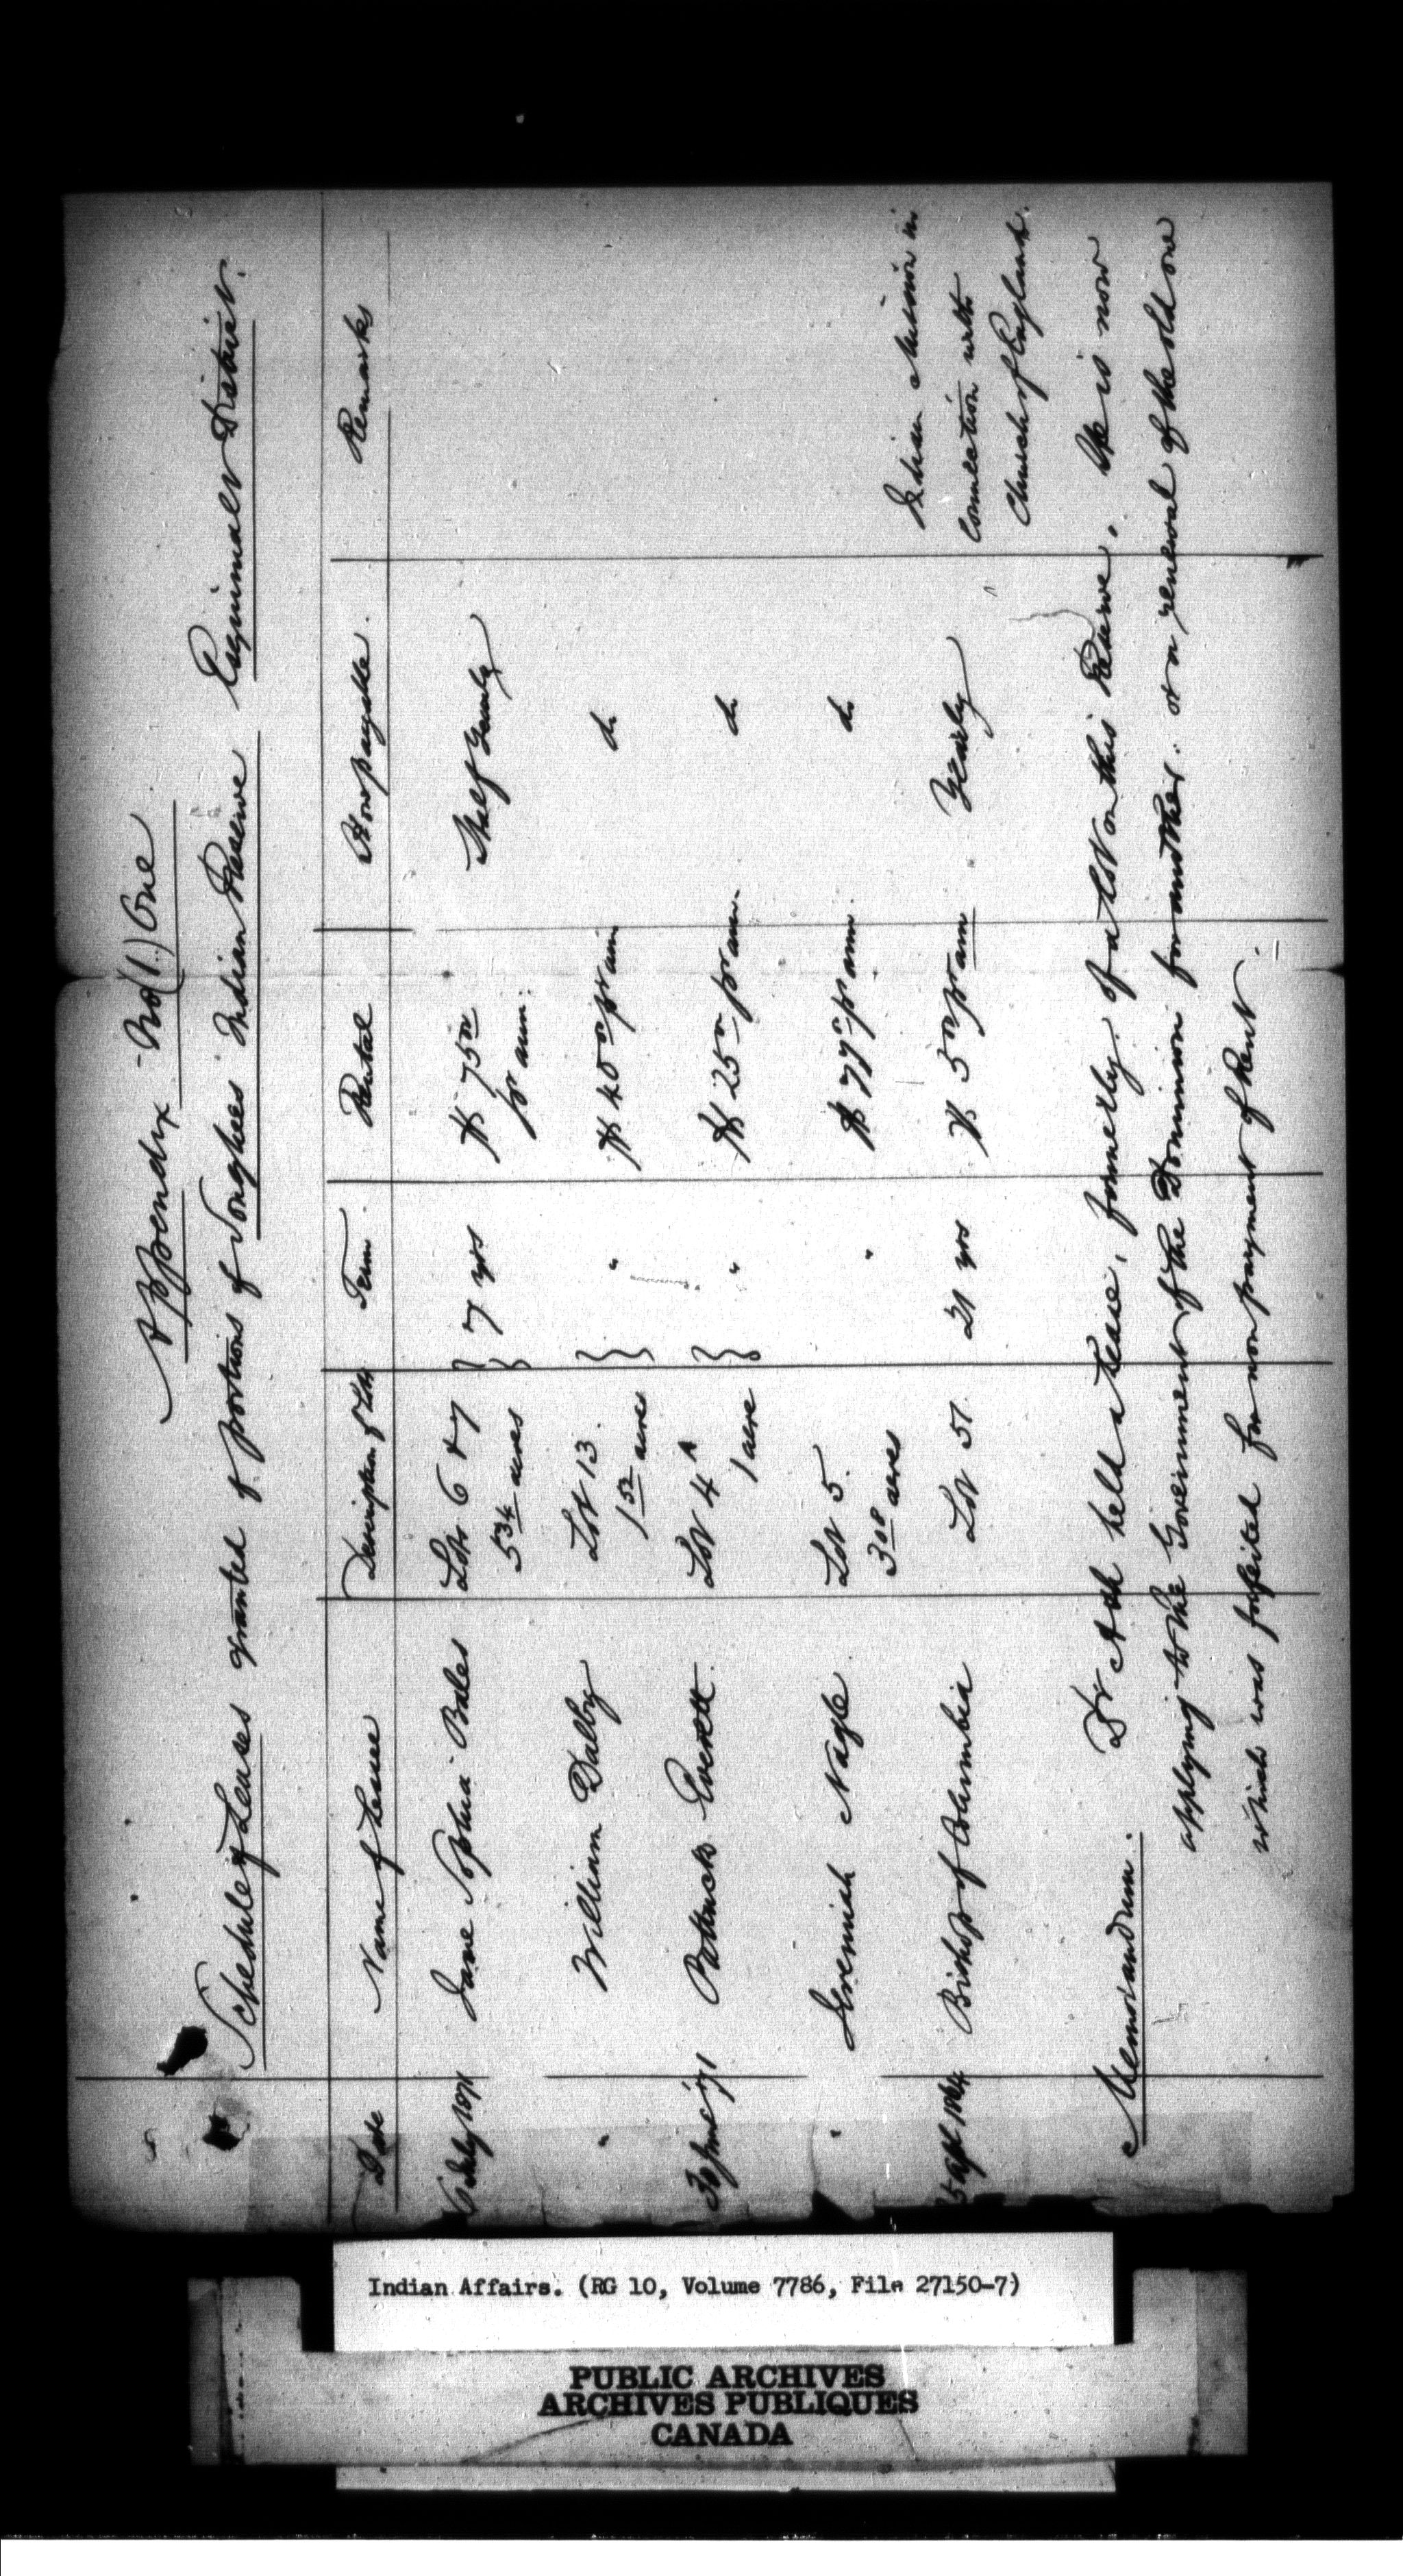 Appendix No (1.) One
Schedule of Leases granted of portions of Songhees Indian Reserve Esquimalt District.
Date Name of Lessee Description of Lot Term Rental How payable. Remarks
6 July 1871 Jane Sophia Bales Lots 6 & 7 7 yrs $75 00 Half Yearly
5 34 acres pr ann.
" William Dalby Lot 13. " $40 00 pr ann do
1 52 acres
30 June '71 Everett Lot 4 A " $25 00 pr ann. do
1 acre
" Jeremiah Nagle Lot 5. " $77 00 pr ann. do
3 08 acres
Indian Mission in
25 Apl 1864 Bishop of Columbia Lot 51 21 yrs $5 00 pr ann Yearly connection with
Church of England.
Memorandum. Dr Ash held a Lease, formerly, of a lot on this Reserve. He is now
applying to the Government of the Dominion for another. or a renewal of the old one
which was forfeited for non payment of Rent.
Indian Affairs. (RG 10, Volume 7786, File 27150-7)
PUBLIC ARCHIVES
ARCHIVES PUBLIQUES
CANADA